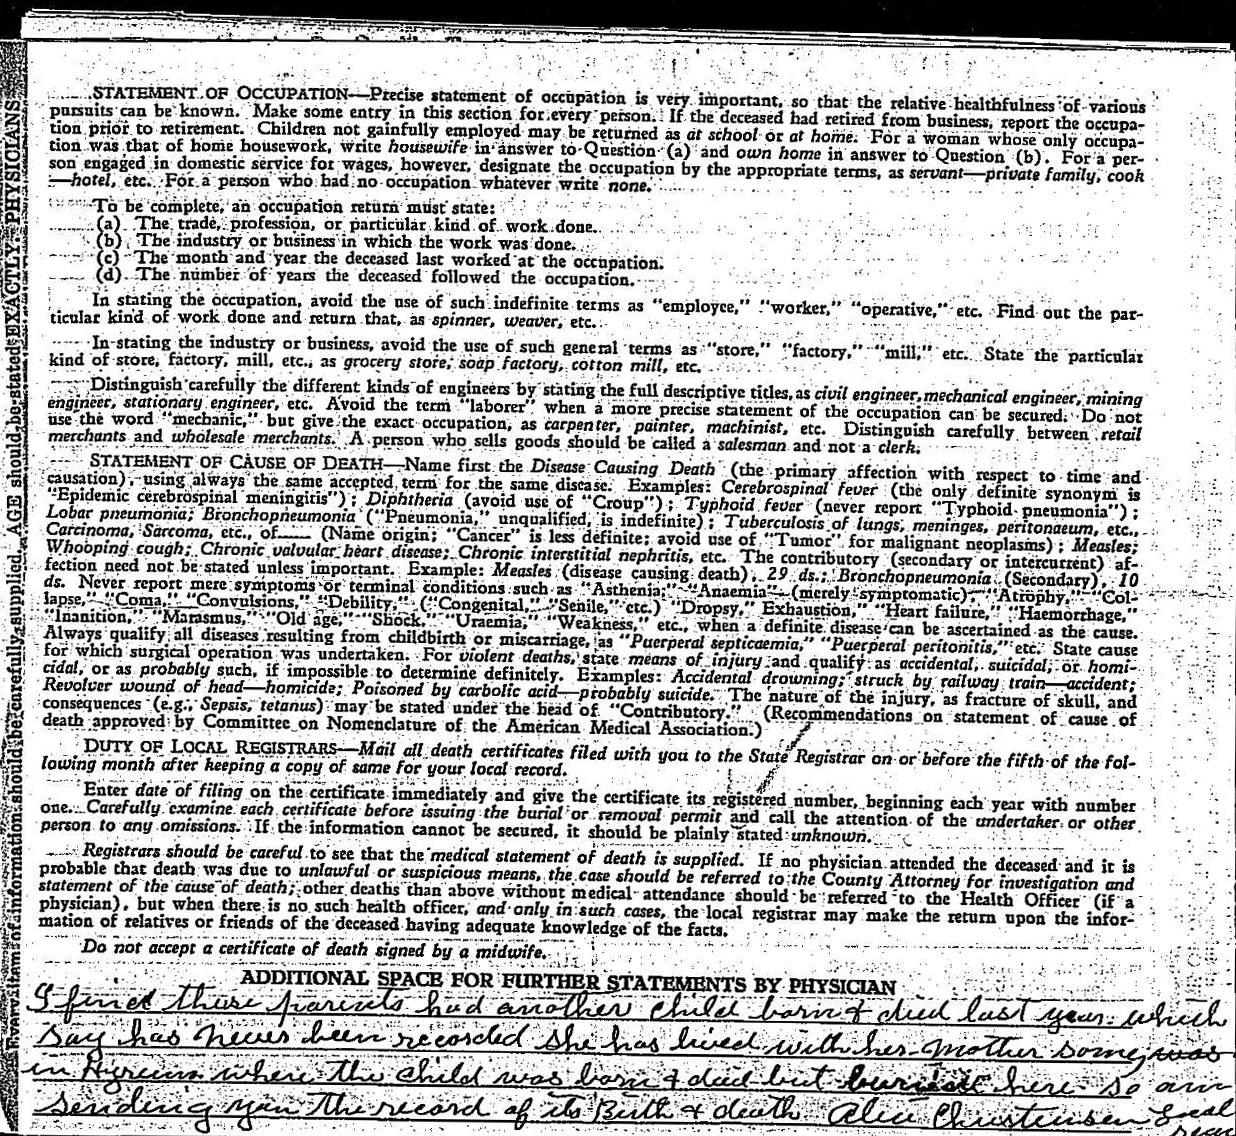 Every item of information should be carefully supplied. AGE should be stated EXACTLY. PHYSICIANS
STATEMENT OF OCCUPATION—Precise statement of occupation is very important, so that the relative healthfulness of various
pursuits can be known. Make some entry in this section for every person. If the deceased had retired from business, report the occupa-
tion prior to retirement. Children not gainfully employed may be returned as at school or at home. For a woman whose only occupa-
tion was that of home housework, write housewife in answer to Question (a) and own home in answer to Question (b). For a per-
son engaged in domestic service for wages, however, designate the occupation by the appropriate terms, as servant—private family, cook
—hotel, etc. For a person who had no occupation whatever write none.
To be complete, an occupation return must state:
(a) The trade, profession, or particular kind of work done.
(b) The industry or business in which the work was done.
(c) The month and year the deceased last worked at the occupation.
(d) The number of years the deceased followed the occupation.
In stating the occupation, avoid the use of such indefinite terms as "employee," "worker," "operative," etc. Find out the par-
ticular kind of work done and return that, as spinner, weaver, etc.
In stating the industry or business, avoid the use of such general terms as "store," "factory," "mill," etc. State the particular
kind of store, factory, mill, etc., as grocery store, soap factory, cotton mill, etc.
Distinguish carefully the different kinds of engineers by stating the full descriptive titles, as civil engineer, mechanical engineer, mining
engineer, stationary engineer, etc. Avoid the term "laborer" when a more precise statement of the occupation can be secured. Do not
use the word "mechanic," but give the exact occupation, as carpenter, painter, machinist, etc. Distinguish carefully between retail
merchants and wholesale merchants. A person who sells goods should be called a salesman and not a clerk.
STATEMENT OF CAUSE OF DEATH—Name first the Disease Causing Death (the primary affection with respect to time and
causation), using always the same accepted term for the same disease. Examples: Cerebrospinal fever (the only definite synonym is
"Epidemic cerebrospinal meningitis"); Diphtheria (avoid use of "Croup"); Typhoid fever (never report "Typhoid pneumonia");
Lobar pneumonia; Bronchopneumonia ("Pneumonia," unqualified, is indefinite); Tuberculosis of lungs, meninges, peritonaeum, etc.,
Carcinoma, Sarcoma, etc., of—— (Name origin; "Cancer" is less definite; avoid use of "Tumor" for malignant neoplasms); Measles;
Whooping cough; Chronic valvular heart disease; Chronic interstitial nephritis, etc. The contributory (secondary or intercurrent) af-
fection need not be stated unless important. Example: Measles (disease causing death), 29 ds.; Bronchopneumonia (Secondary), 10
ds. Never report mere symptoms or terminal conditions such as "Asthenia," "Anaemia" (merely symptomatic), "Atrophy," "Col-
lapse," "Coma," "Convulsions," "Debility," ("Congenital," "Senile," etc.) "Dropsy," Exhaustion," "Heart failure," "Haemorrhage,"
"Inanition," "Marasmus," "Old age," "Shock," "Uraemia," "Weakness," etc., when a definite disease can be ascertained as the cause.
Always qualify all diseases resulting from childbirth or miscarriage, as "Puerperal septicaemia," "Puerperal peritonitis," etc. State cause
for which surgical operation was undertaken. For violent deaths, state means of injury and qualify as accidental, suicidal, or homi-
cidal, or as probably such, if impossible to determine definitely. Examples: Accidental drowning; struck by railway train—accident;
Revolver wound of head—homicide; Poisoned by carbolic acid—probably suicide. The nature of the injury, as fracture of skull, and
consequences (e.g., Sepsis, tetanus) may be stated under the head of "Contributory." (Recommendations on statement of cause of
death approved by Committee on Nomenclature of the American Medical Association.)
DUTY OF LOCAL REGISTRARS—Mail all death certificates filed with you to the State Registrar on or before the fifth of the fol-
lowing month after keeping a copy of same for your local record.
Enter date of filing on the certificate immediately and give the certificate its registered number, beginning each year with number
one. Carefully examine each certificate before issuing the burial or removal permit and call the attention of the undertaker or other
person to any omissions. If the information cannot be secured, it should be plainly stated unknown.
Registrars should be careful to see that the medical statement of death is supplied. If no physician attended the deceased and it is
probable that death was due to unlawful or suspicious means, the case should be referred to the County Attorney for investigation and
statement of the cause of death; other deaths than above without medical attendance should be referred to the Health Officer (if a
physician), but when there is no such health officer, and only in such cases, the local registrar may make the return upon the infor-
mation of relatives or friends of the deceased having adequate knowledge of the facts.
Do not accept a certificate of death signed by a midwife.
ADDITIONAL SPACE FOR FURTHER STATEMENTS BY PHYSICIAN
I find these parents had another child born & died last year which
say has never been recorded she has lived with her Mother some, was
in Hyrum where the child was born & died but buried here so am
sending you the record of its Birth & death Alice Christensen Local